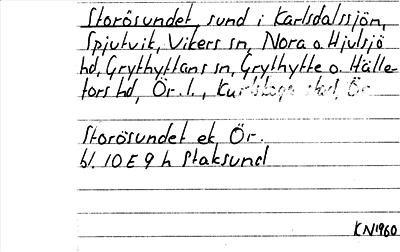 Storösundet, sund i Karlsdalssjön,
Spjutvik, Vikers sn, Nora o. Hjulsjö
hd, Grythyttans sn, Grythytte o. Hälle
fors hd, Ör. l., Karlskoga stad, Ör.
Storösundet ek, Ör.
bl. 10 E 9 h Staksund
KN1960